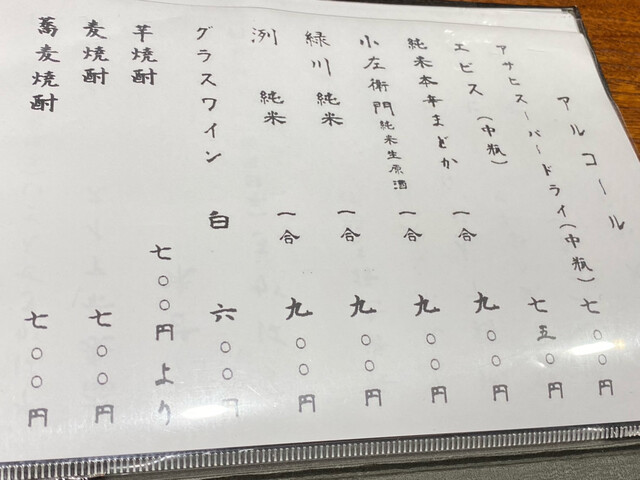 アルコール
アサヒスーパードライ(中瓶) 七〇〇円
エビス(中瓶) 七五〇円
純米本辛まどか 一合 九〇〇円
小左衛門純米生原酒 一合 九〇〇円
緑川 純米 一合 九〇〇円
洌 純米 一合 九〇〇円
グラスワイン 白 六〇〇円
芋焼酎 七〇〇円より
麦焼酎 七〇〇円
蕎麦焼酎 七〇〇円